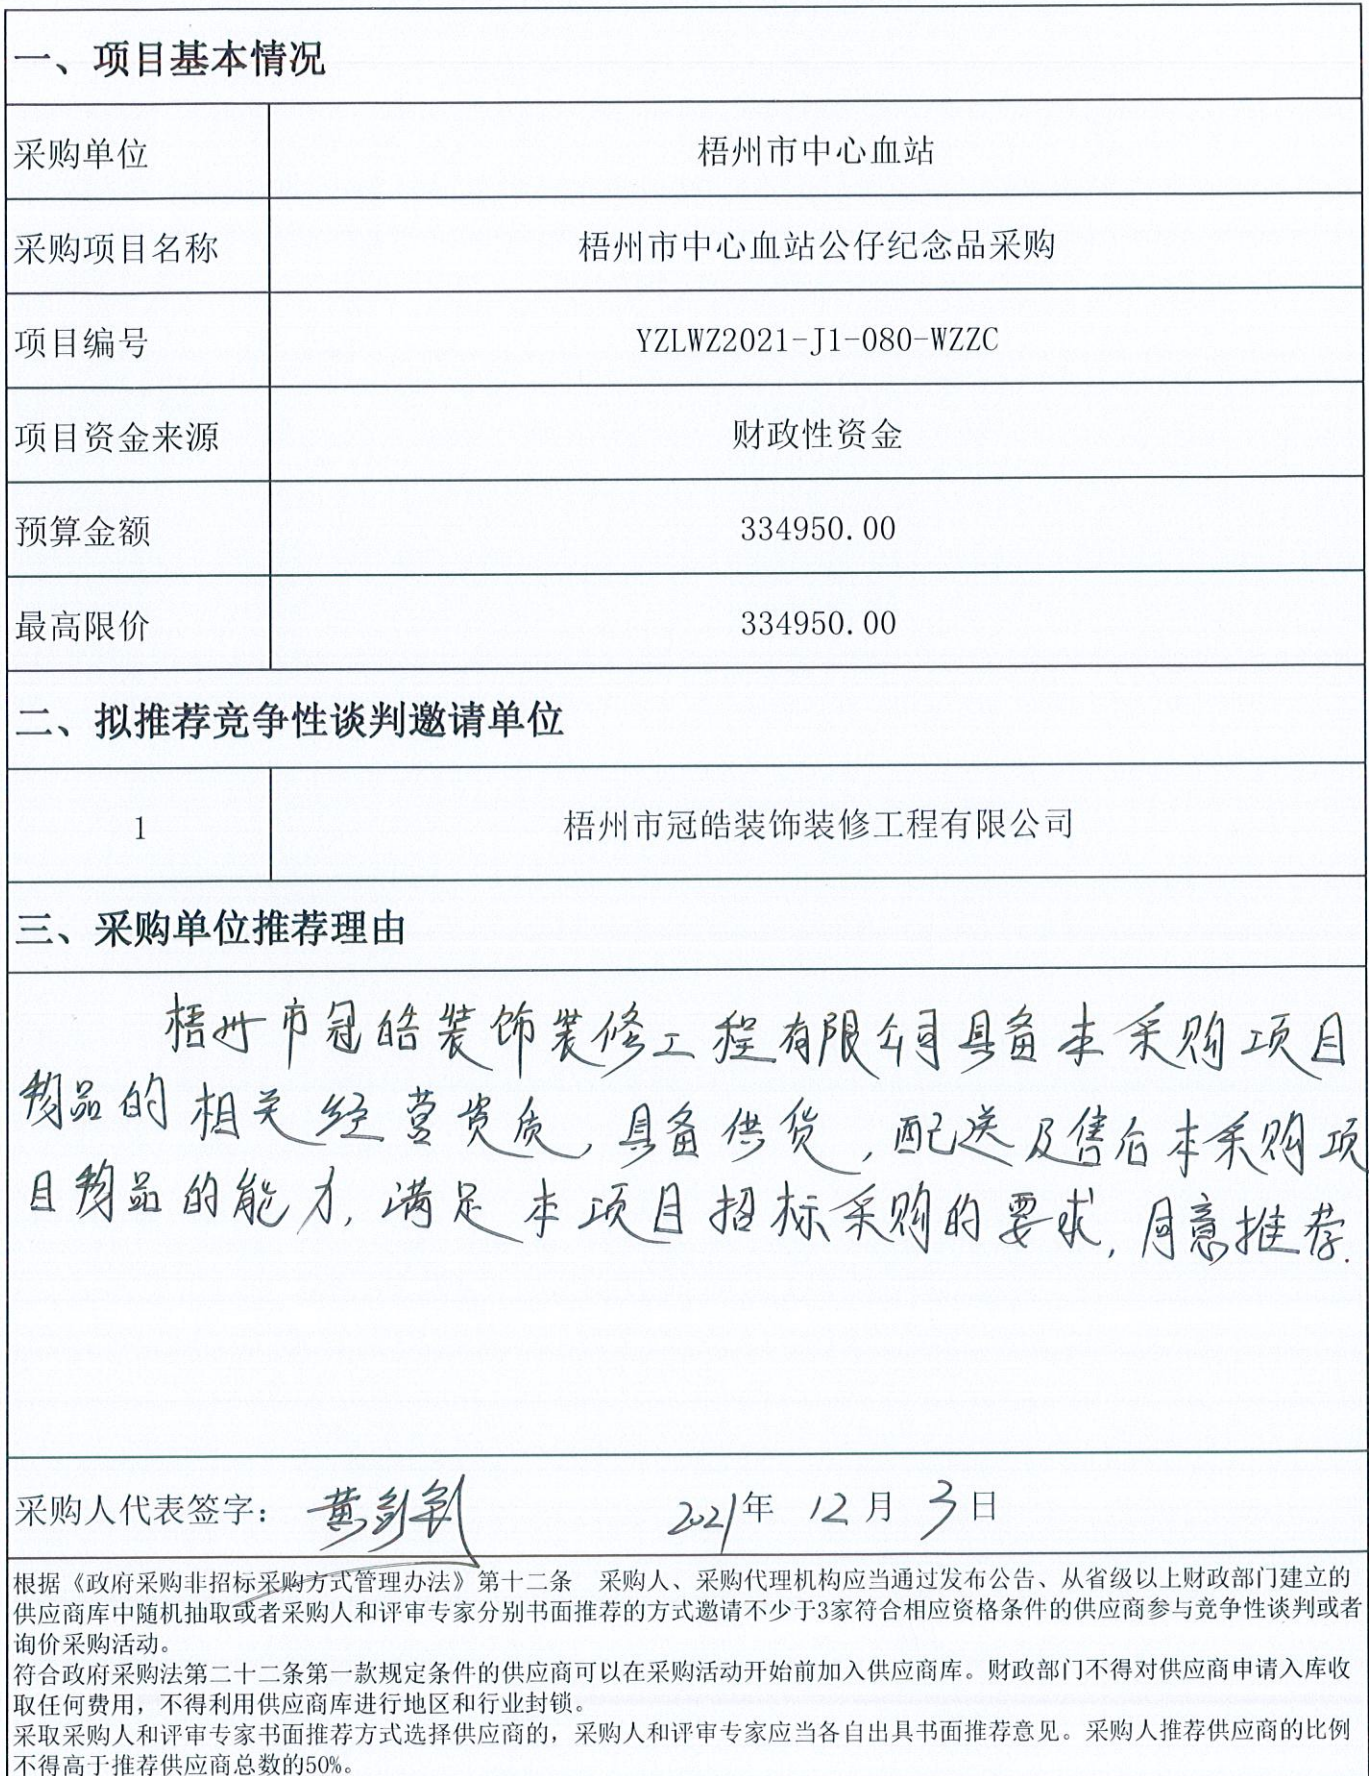 一、项目基本情况
采购单位 梧州市中心血站
采购项目名称 梧州市中心血站公仔纪念品采购
项目编号 YZLWZ2021-J1-080-WZZC
项目资金来源 财政性资金
预算金额 334950.00
最高限价 334950.00
二、拟推荐竞争性谈判邀请单位
1 梧州市冠皓装饰装修工程有限公司
三、采购单位推荐理由
梧州市冠皓装饰装修工程有限公司具备本采购项目
物品的相关经营资质,具备供货,配送及售后本采购项
目物品的能力,满足本项目招标采购的要求,同意推荐.
采购人代表签字: 黄 2021年 12月 3日
根据《政府采购非招标采购方式管理办法》第十二条 采购人、采购代理机构应当通过发布公告、从省级以上财政部门建立的
供应商库中随机抽取或者采购人和评审专家分别书面推荐的方式邀请不少于3家符合相应资格条件的供应商参与竞争性谈判或者
询价采购活动。
符合政府采购法第二十二条第一款规定条件的供应商可以在采购活动开始前加入供应商库。财政部门不得对供应商申请入库收
取任何费用，不得利用供应商库进行地区和行业封锁。
采取采购人和评审专家书面推荐方式选择供应商的，采购人和评审专家应当各自出具书面推荐意见。采购人推荐供应商的比例
不得高于推荐供应商总数的50%。